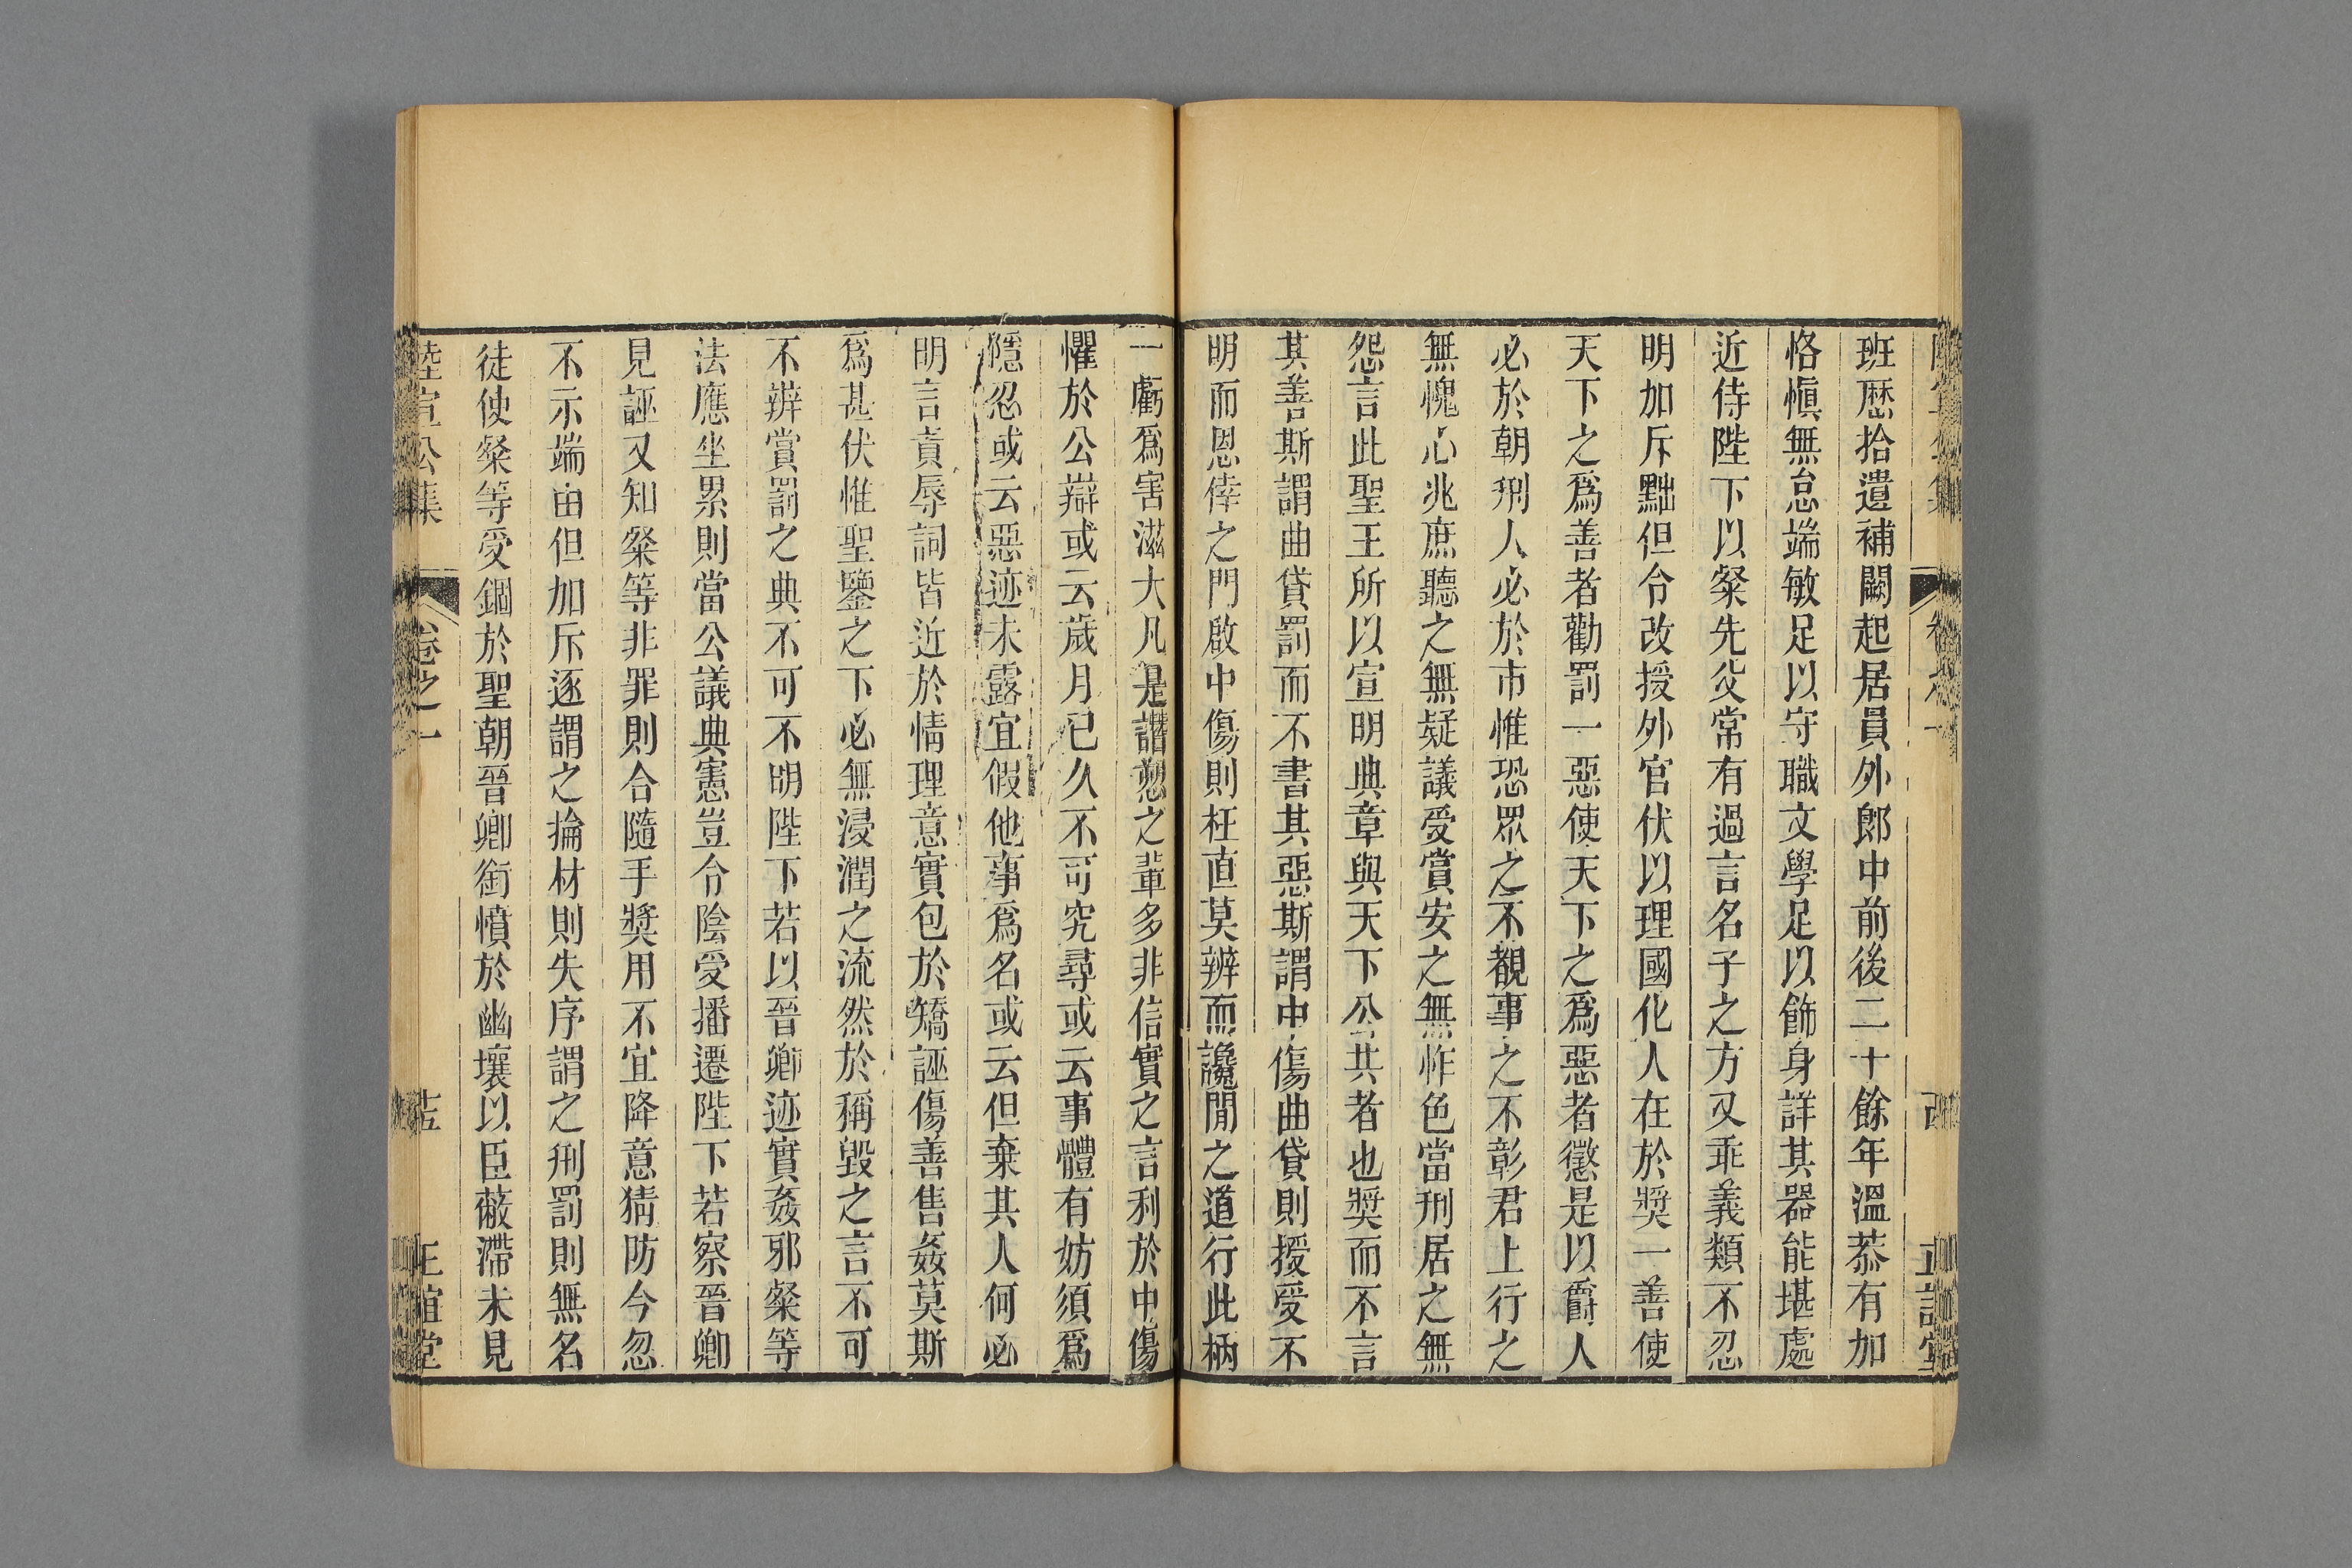 班歷拾遺補闕起居員外郎中前後二十餘年溫恭有加
恪愼無怠端敏足以守職文學足以飾身詳其器能堪處
近侍陛下以粲先父常有過言名子之方又乖義類不忍
明加斥黜但令改授外官伏以理國化人在於奬一善使
天下之爲善者勸罰一惡使天下之爲惡者懲是以爵人
必於朝刑人必於市惟恐眾之不覩事之不彰君上行之
無愧心兆庶聽之無疑議受賞安之無怍色當刑居之無
怨言此聖王所以宣明典章與天下公共者也奬而不言
其善斯謂曲貸罰而不書其惡斯謂中傷曲貸則授受不
明而恩倖之門啟中傷則枉直莫辨而讒閒之道行此柄
一虧爲害滋大凡是譖愬之輩多非信實之言利於中傷
懼於公辯或云歲月已久不可究尋或云事體有妨須爲
隱忍或云惡迹未露宜假他事爲名或云但棄其人何必
明言責辱詞皆近於情理意實包於矯誣傷善售姦莫斯
爲甚伏惟聖鑒之下必無浸潤之流然於稱毀之言不可
不辨賞罰之典不可不明陛下若以晉卿迹實姦邪粲等
法應坐累則當公議典憲豈令陰受播遷陛下若察晉卿
見誣又知粲等非罪則合隨手奬用不宜降意猜防今忽
不示端由但加斥逐謂之掄材則失序謂之刑罰則無名
徒使粲等受錮於聖朝晉卿銜憤於幽壤以臣蔽滯未見
陸宣公集 卷之一 正誼堂